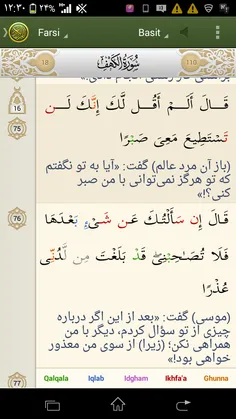 ۱۲:۳۰ ۲۴%
Farsi Basit
18 سُورَةُ الكَهْفِ 110
16
75
قَالَ أَلَمْ أَقُل لَّكَ إِنَّكَ لَن
تَسْتَطِيعَ مَعِيَ صَبْرًا
(باز آن مرد عالم) گفت: «آیا به تو نگفتم
که تو هرگز نمی‌توانی با من صبر
کنی؟!»
76
قَالَ إِن سَأَلْتُكَ عَن شَيْءٍ بَعْدَهَا
فَلَا تُصَاحِبْنِي ۖ قَدْ بَلَغْتَ مِن لَّدُنِّي
عُذْرًا
(موسی) گفت: «بعد از این اگر درباره
چیزی از تو سؤال کردم، دیگر با من
همراهی نکن؛ (زیرا) از سوی من معذور
خواهی بود!»
77
Qalqala Iqlab Idgham Ikhfa'a Ghunna